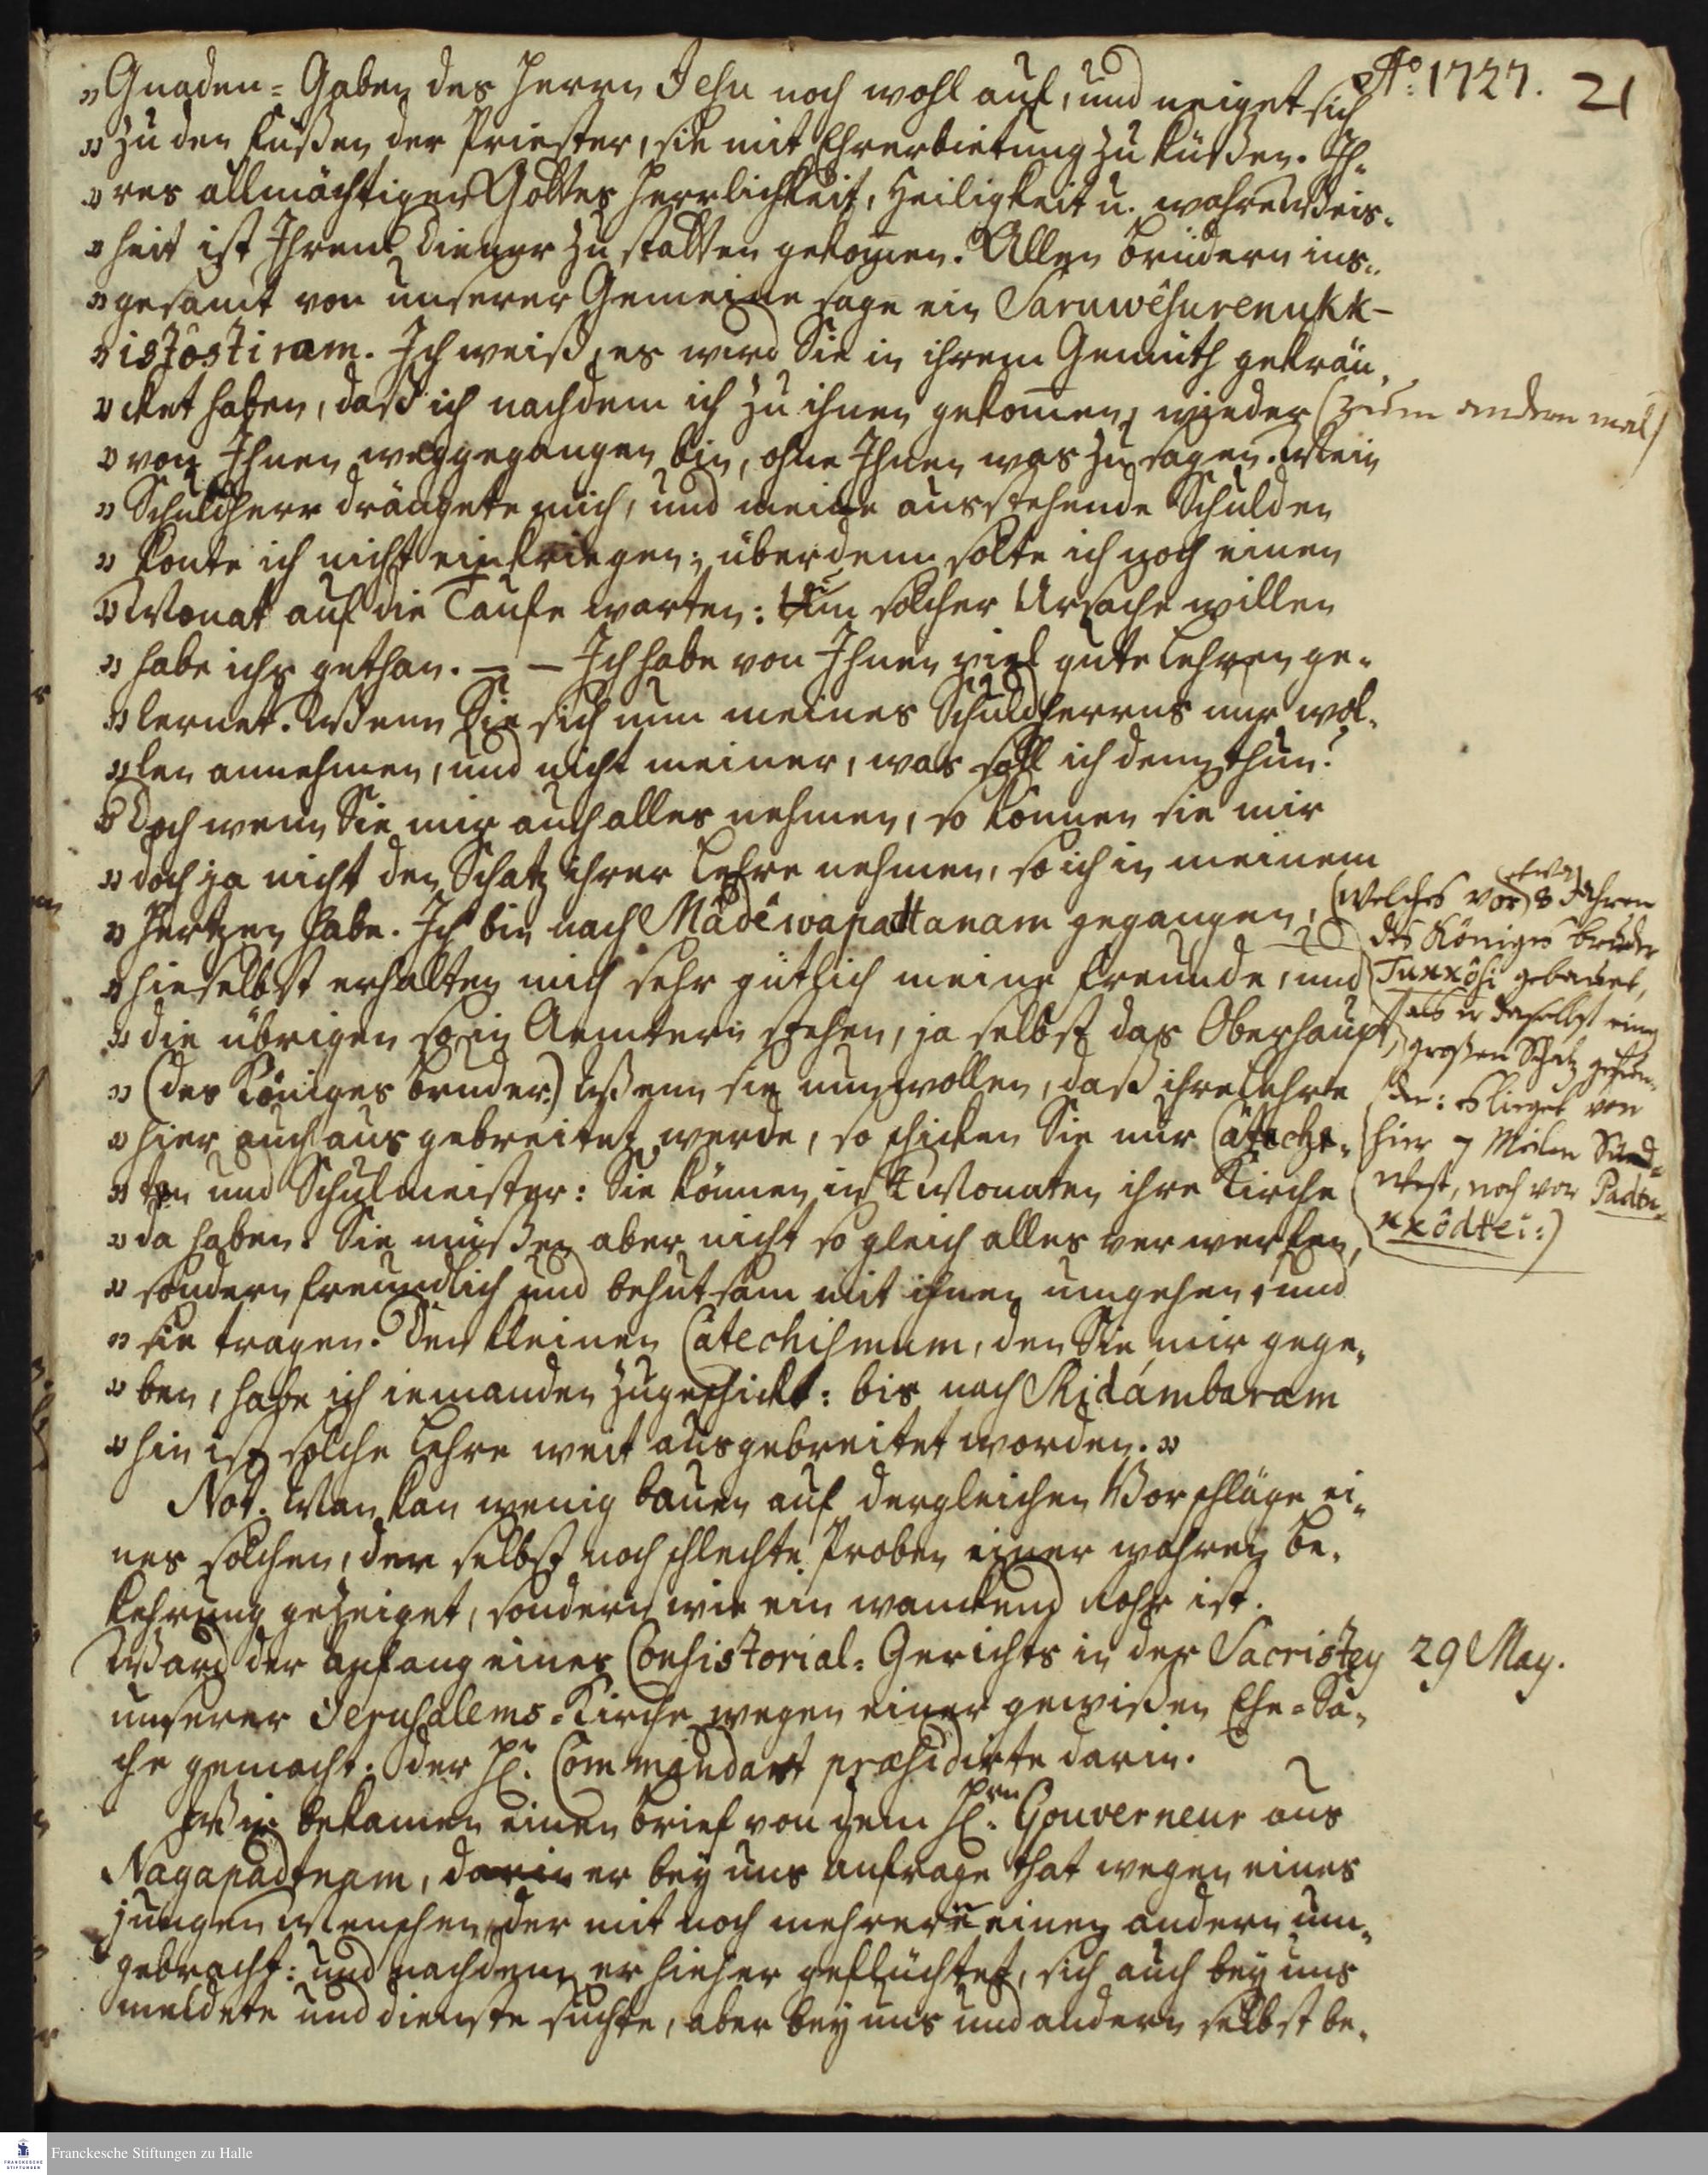 Aô: 1727. 21
„Gnaden-Gaben des Herrn Jesu noch wohl auf, und neiget sich
„zu den Füßen der Priester, sie mit Ehrerbietung zu küßen. Ih-
„res allmächtigen Gottes Herrlichkeit, Heiligkeit u. wahre Weis-
„heit ist Ihrem Diener zu statten gekom̄en. Allen Brüdern ins-
„gesamt von unserer Gemeine sage ein Saruwêsurenukk-
„istôstiram. Ich weiß, es wird Sie in ihrem Gemüth gekrän-
„cket haben, daß ich nachdem ich zu ihnen gekom̄en, wieder (zum andern mal)
„von Ihnen weggegangen bin, ohne Ihnen was zu sagen. Mein
„Schuldherr drängete mich, und meine ausstehende Schulden
„konte ich nicht einkriegen; über dem solte ich noch einen
„Monat auf die Taufe warten: Um solcher Ursache willen
„habe ichs gethan. — — Ich habe von Ihnen viel gute Lehren ge-
„lernet. Wenn Sie sich nun meines Schuldherrns nur wol-
„len annehmen, und nicht meiner, was soll ich denn thun?
„Doch wenn Sie mir auch alles nehmen, so können sie mir
„doch ja nicht den Schatz ihrer Lehre nehmen, so ich in meinem
„Hertzen habe. Ich bin nach Mâdêwapattanam gegangen,
„hieselbst erhalten mich sehr gütlich meine Freunde, und
„die übrigen so in Aemtern stehen, ja selbst das Oberhaupt,
„(des Königes Bruder.) Wenn sie nun wollen, daß ihre Lehre
„hier auch ausgebreitet werde, so schicken Sie nur Cateche-
„ten und Schulmeister: Sie können in Monaten ihre Kirche
„da haben. Sie müßen aber nicht so gleich alles verwerfen,
„sondern freundlich und behutsam mit ihnen umgehen, und
„sie tragen. Den kleinen Catechismum, den Sie mir gege-
„ben, habe ich iemanden zugeschickt: bis nach Sidámbaram
„hin ist solche Lehre weit ausgebreitet worden.„
(welches vor etwa 8 Jahren
des Königes Bruder
Tukkôsi gebauet,
als er daselbst einen
großen Schatz gefun-
den: Es lieget von
hier 7 Meilen Süd-
West, noch vor Pattu-
kkôdtei:)
Not. Man kan wenig bauen auf dergleichen Vorschläge ei-
nes solchen, der selbst noch schlechte Proben einer wahren Be-
kehrung gezeiget, sondern wie ein wanckend Rohr ist.
Ward der Anfang eines Consistorial-Gerichts in der Sacristey 29 May.
unserer Jerusalems-Kirche wegen einer gewißen Ehe-Sa-
che gemacht. Der H. Commandant præsidirte darin.
Wir bekamen einen Brief von dem Hrn. Gouverneur aus
Nagapadtnam, darin er bey uns Anfrage that wegen eines
jungen Menschen, der mit noch mehreren einen andern um-
gebracht: und nachdem er hieher geflüchtet, sich auch bey uns
meldete und Dienste suchte, aber bey uns und andern selbst be-
Franckesche Stiftungen zu Halle